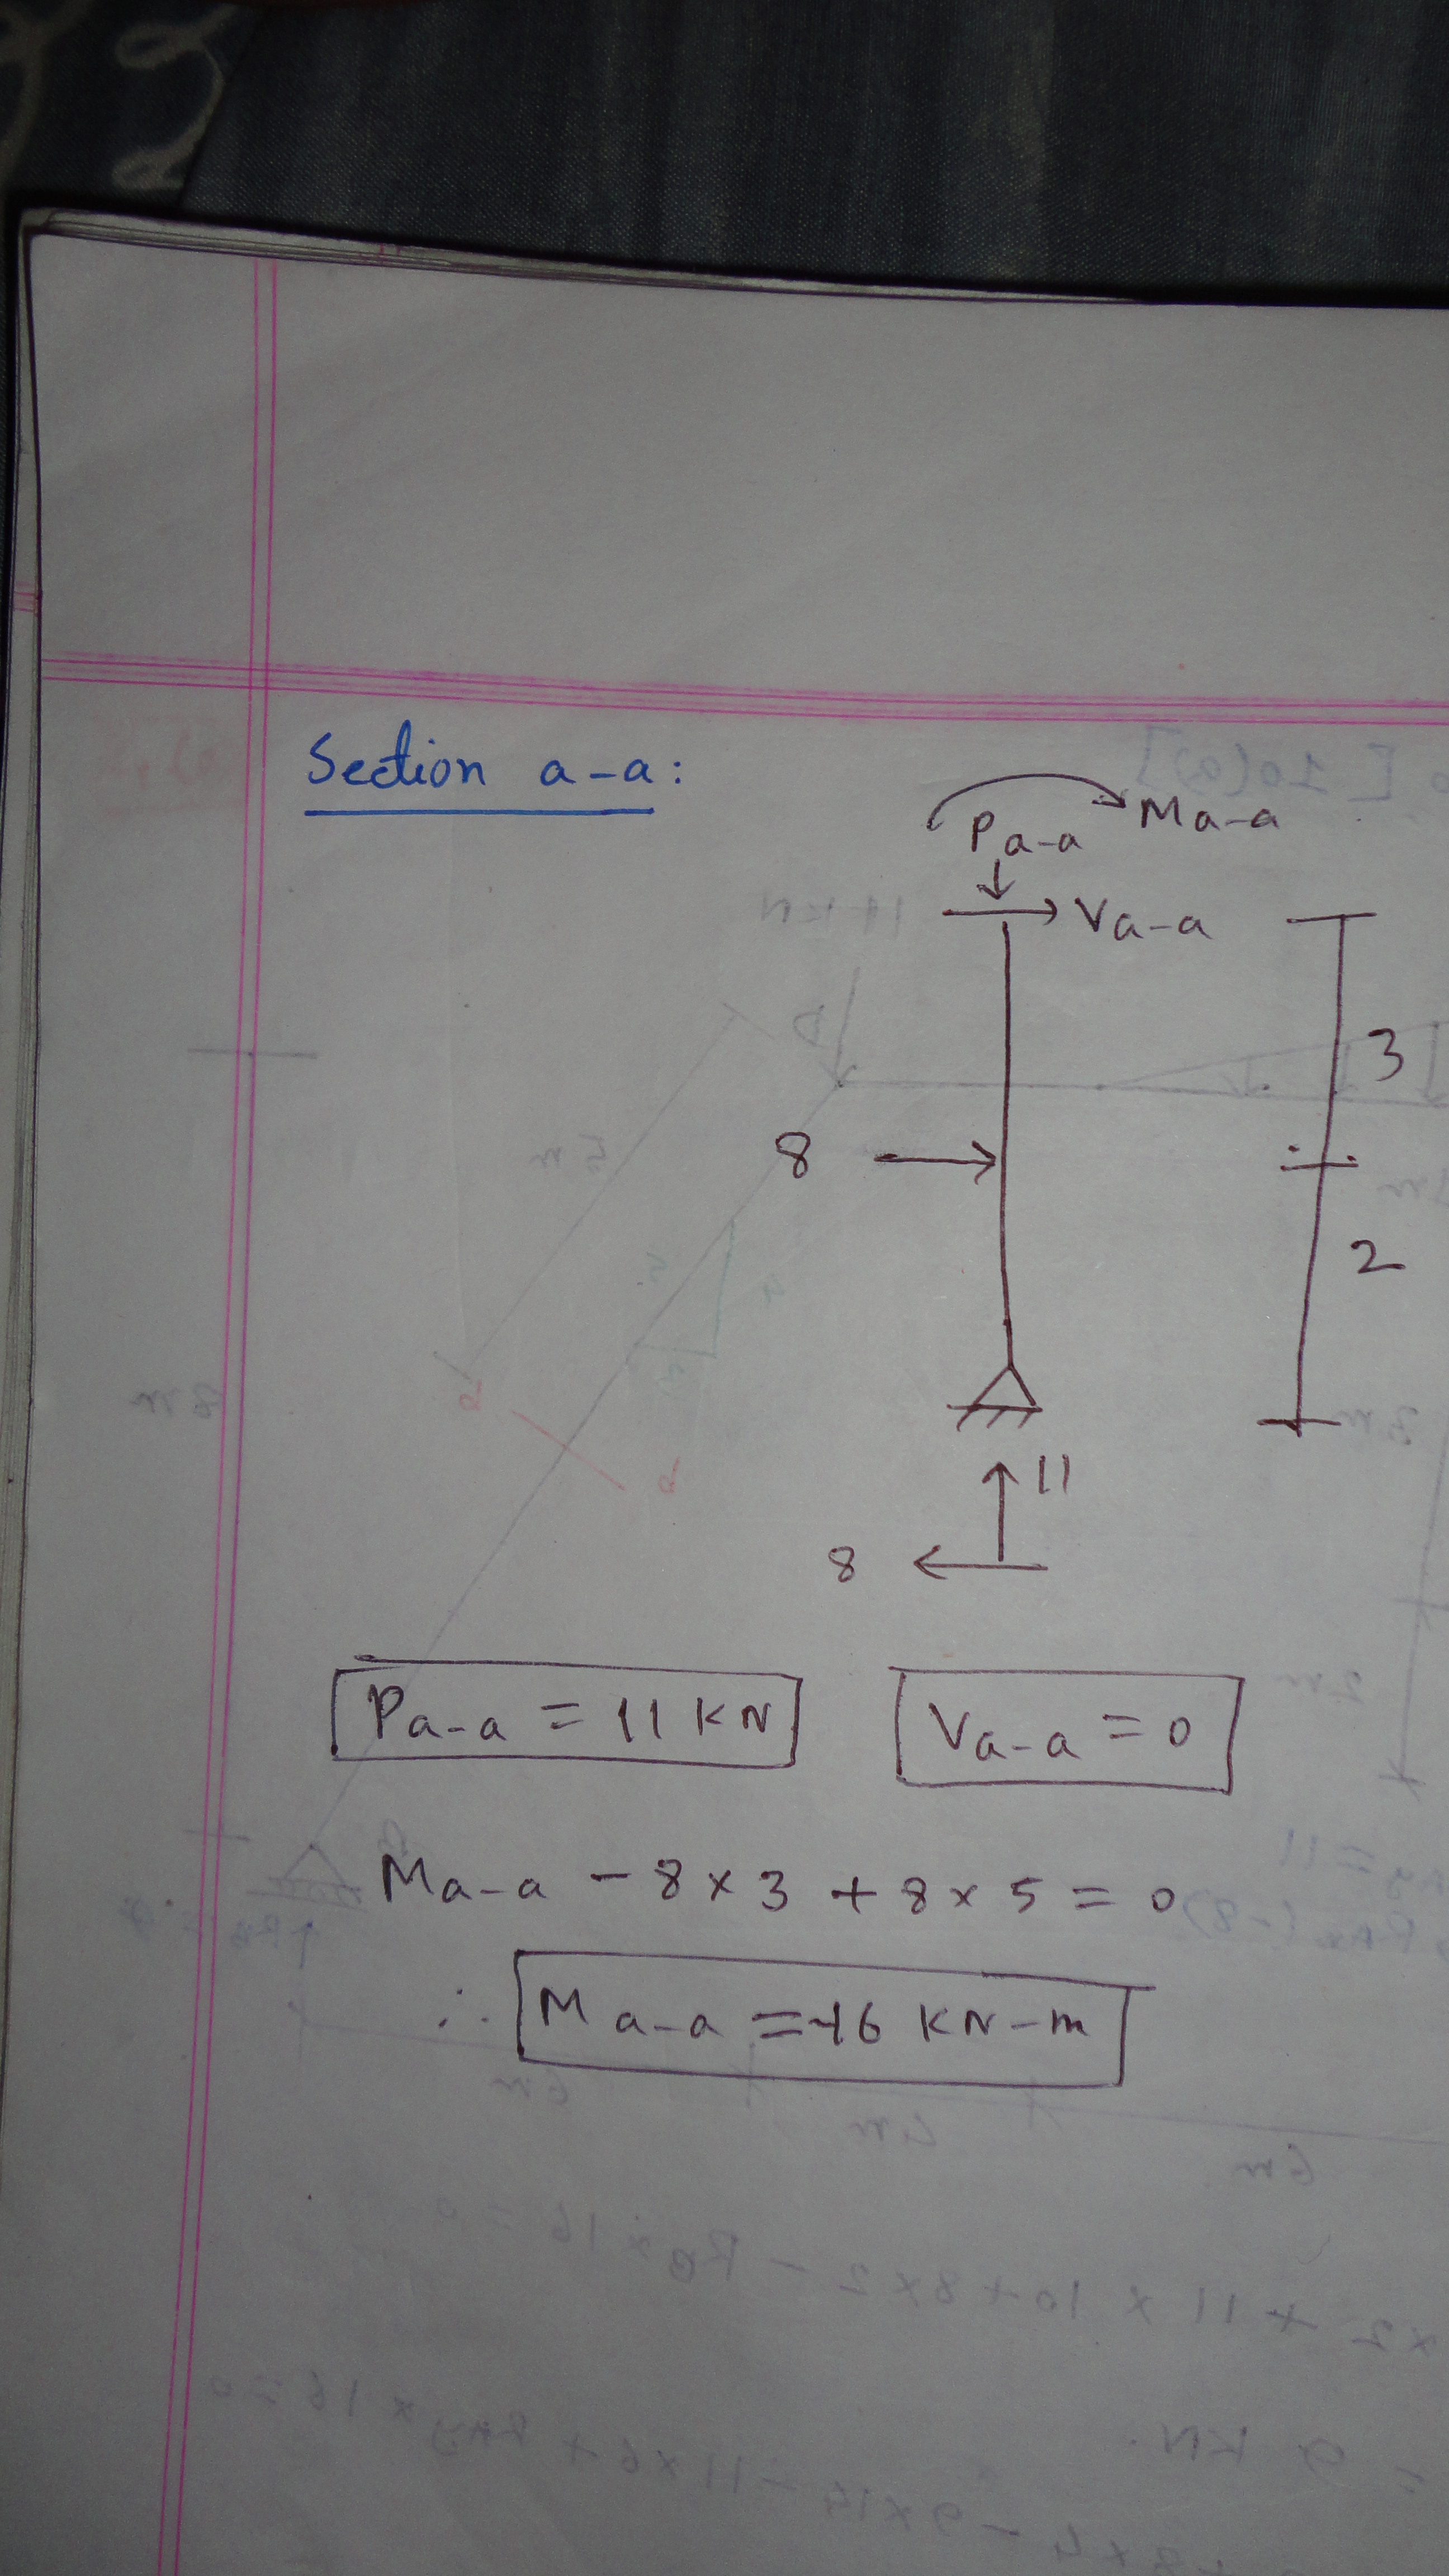 Section a-a:
Ma-a
Pa-a
Va-a
3
8
2
11
8
Pa-a = 11 KN
Va-a = 0
Ma-a - 8 × 3 + 8 × 5 = 0
∴ Ma-a = -16 KN-m